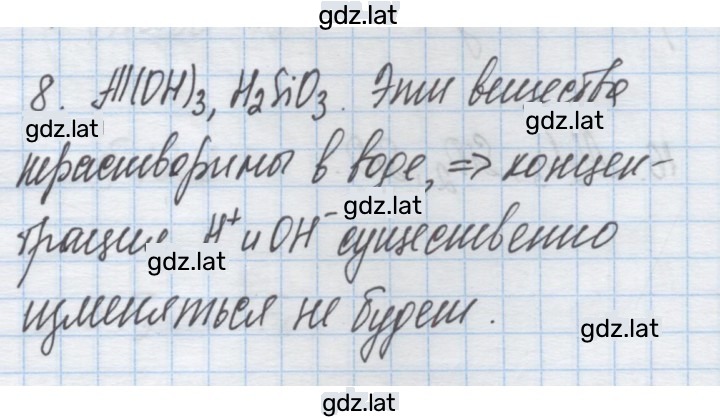 gdz.lat
8. Al(OH)3, H2SiO3. Эти вещества
gdz.lat gdz.lat
нерастворимы в воде, => концен-
gdz.lat
трация H⁺ и OH⁻ существенно
gdz.lat
изменяться не будет.
gdz.lat
gdz.lat